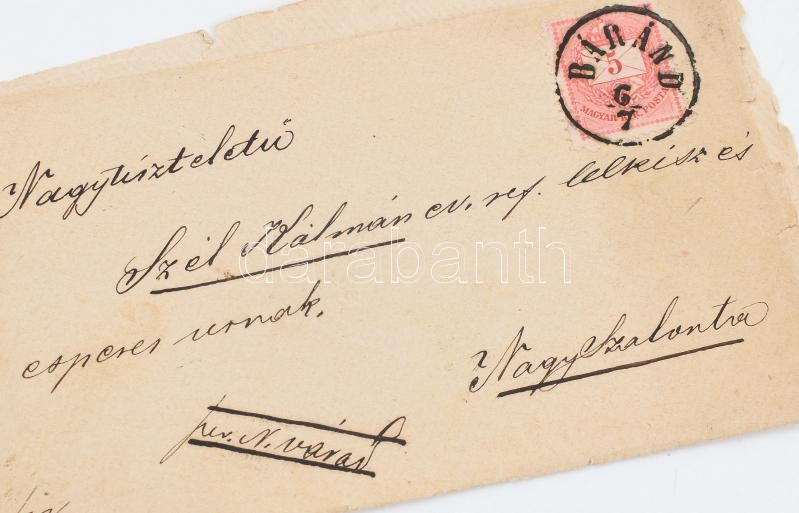 BÁRÁND
5
6
7
MAGYAR KIR. POSTA
Nagytiszteletű
Szél Kálmán ev. ref. lelkész és
esperes urnak.
Nagy Szalonta
per. N. várad
darabanth